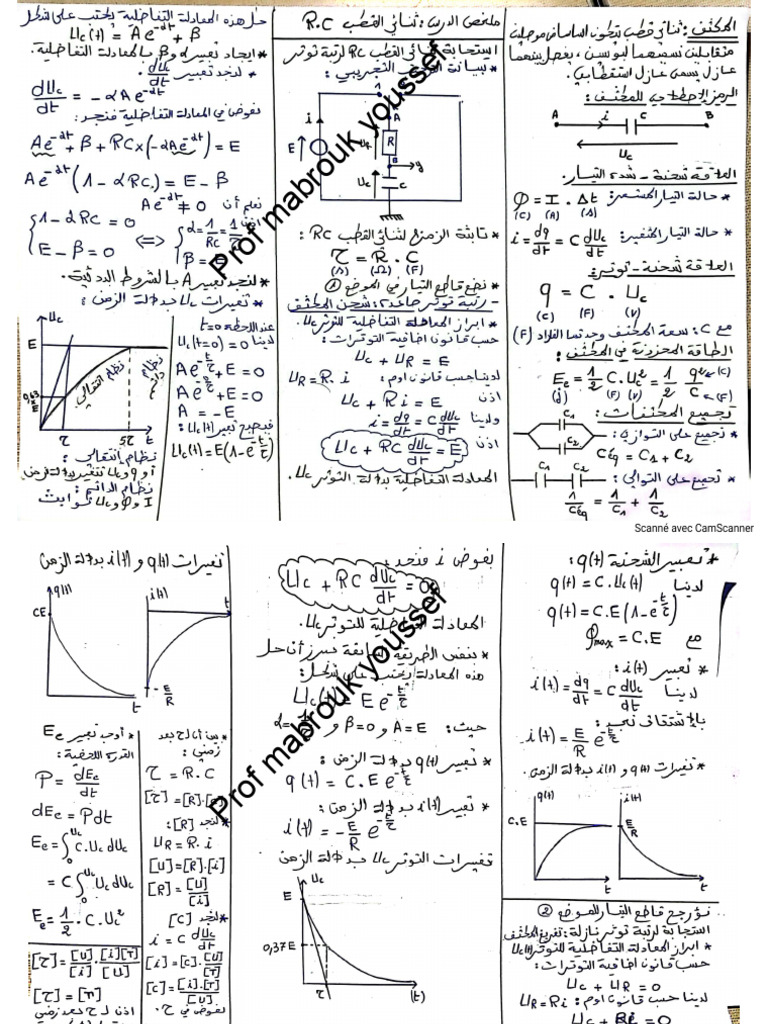 ملخص الدرس: ثنائي القطب R.C
المكثف: ثنائي قطب يتكون أساسا من موصلين
متقابلين نسميهما لبوسين، يفصل بينهما
عازل يسمى عازل استقطابي.
الرمز الاصطلاحي للمكثف:
A i C B
Uc
العلاقة شحنة - شدة التيار.
* حالة التيار المستمر: Q = I . Δt
(C) (A) (s)
* حالة التيار المتغير: i = dq/dt = C dUc/dt
العلاقة شحنة - توتر:
q = C . Uc
(C) (F) (V)
مع C: سعة المكثف وحدتها الفاراد (F)
الطاقة المخزونة في المكثف:
Ee = 1/2 C.Uc² = 1/2 q²/C
(j) (F) (V) (C) (F)
تجميع المكثفات:
* تجميع على التوازي:
C1
C2
Céq = C1 + C2
* تجميع على التوالي:
C1 C2
1/Céq = 1/C1 + 1/C2
استجابة ثنائي القطب RC لرتبة توتر
Prof mabrouk youssef
i
E
A
R
B
y
Uc
C
* ثابتة الزمن لثنائي القطب RC:
τ = R . C
(s) (Ω) (F)
* نضع قاطع التيار في الموضع ①
- رتبة توتر صاعدة: شحن المكثف
* ابراز المعادلة التفاضلية للتوتر Uc.
حسب قانون إضافية التوترات:
Uc + UR = E
لدينا حسب قانون أوم: UR = R. i
اذن Uc + Ri = E
ولدينا i = dq/dt = C dUc/dt
اذن Uc + RC dUc/dt = E
المعادلة التفاضلية بدلالة التوتر Uc.
حل هذه المعادلة التفاضلية يكتب على الشكل
Uc(t) = A e^-αt + β
* ايجاد تعبير α و β بالمعادلة التفاضلية.
* لنجد تعبير dUc/dt
dUc/dt = -αA e^-αt
نعوض في المعادلة التفاضلية فنجد:
Ae^-αt + β + RC×(-αAe^-αt) = E
Ae^-αt (1 - αRC) = E - β
نعلم أن Ae^-αt ≠ 0
1 - αRC = 0
E - β = 0
<=>
α = 1/RC = 1/τ
β = E
* لنجد تعبير A بالشروط البدئية.
* تغيرات Uc بدلالة الزمن:
Uc
E
0,63 × E
نظام انتقالي
نظام دائم
τ 5τ t
عند اللحظة t=0
لدينا Uc(t=0) = 0
Ae^-0/τ + E = 0
A e^0 + E = 0
A = -E
فيصبح تعبير Uc(t):
Uc(t) = E(1 - e^-t/τ)
نظام انتقالي:
نظام الدائم:
Scanné avec CamScanner
* تعبير الشحنة q(t):
لدينا q(t) = C.Uc(t)
q(t) = C.E(1 - e^-t/τ)
مع Qmax = C.E
* تعبير i(t):
لدينا i(t) = dq/dt = C dUc/dt
باشتقاق نجد:
i(t) = E/R e^-t/τ
* تغيرات q(t) و i(t) بدلالة الزمن.
q(t)
C.E
t
i(t)
E/R
t
نؤرجح قاطع التيار للموضع ②
استجابة لرتبة توتر نازلة: تفريغ المكثف
* ابراز المعادلة التفاضلية للتوتر Uc(t)
حسب قانون إضافية التوترات:
Uc + UR = 0
لدينا حسب قانون أوم: UR = Ri
Uc + Ri = 0
بعوض i فنجد:
Uc + RC dUc/dt = 0
المعادلة التفاضلية للتوتر Uc.
Prof mabrouk youssef
* بنفس الطريقة السابقة نبرز أن حل
هذه المعادلة يكتب على الشكل:
Uc(t) = E e^-t/τ
حيث: A = E و β = 0 و
* تعبير q(t) بدلالة الزمن:
q(t) = C.E e^-t/τ
* تعبير i(t) بدلالة الزمن:
i(t) = -E/R e^-t/τ
تغيرات التوتر Uc بدلالة الزمن
Uc
E
0,37E
τ (t)
تغيرات i(t) و q(t) بدلالة الزمن
q(t)
CE
t
i(t)
t
-E/R
زمني:
τ = R.C
* لنجد [R]:
UR = R.i
[U] = [R].[i]
[R] = [U]/[i]
* لنجد [C]
i = C dUc/dt
[i] = [C].[U]/[T]
[C] = [i].[T]/[U]
نعوض في τ.
* أوجد تعبير Ee
القدرة اللحظية:
P = dEe/dt
dEe = Pdt
Ee = ∫0^Uc C.Uc dUc
= C ∫0^Uc Uc dUc
Ee = 1/2 . C.Uc²
[τ] = [U]/[i] . [i][T]/[U]
[τ] = [T]